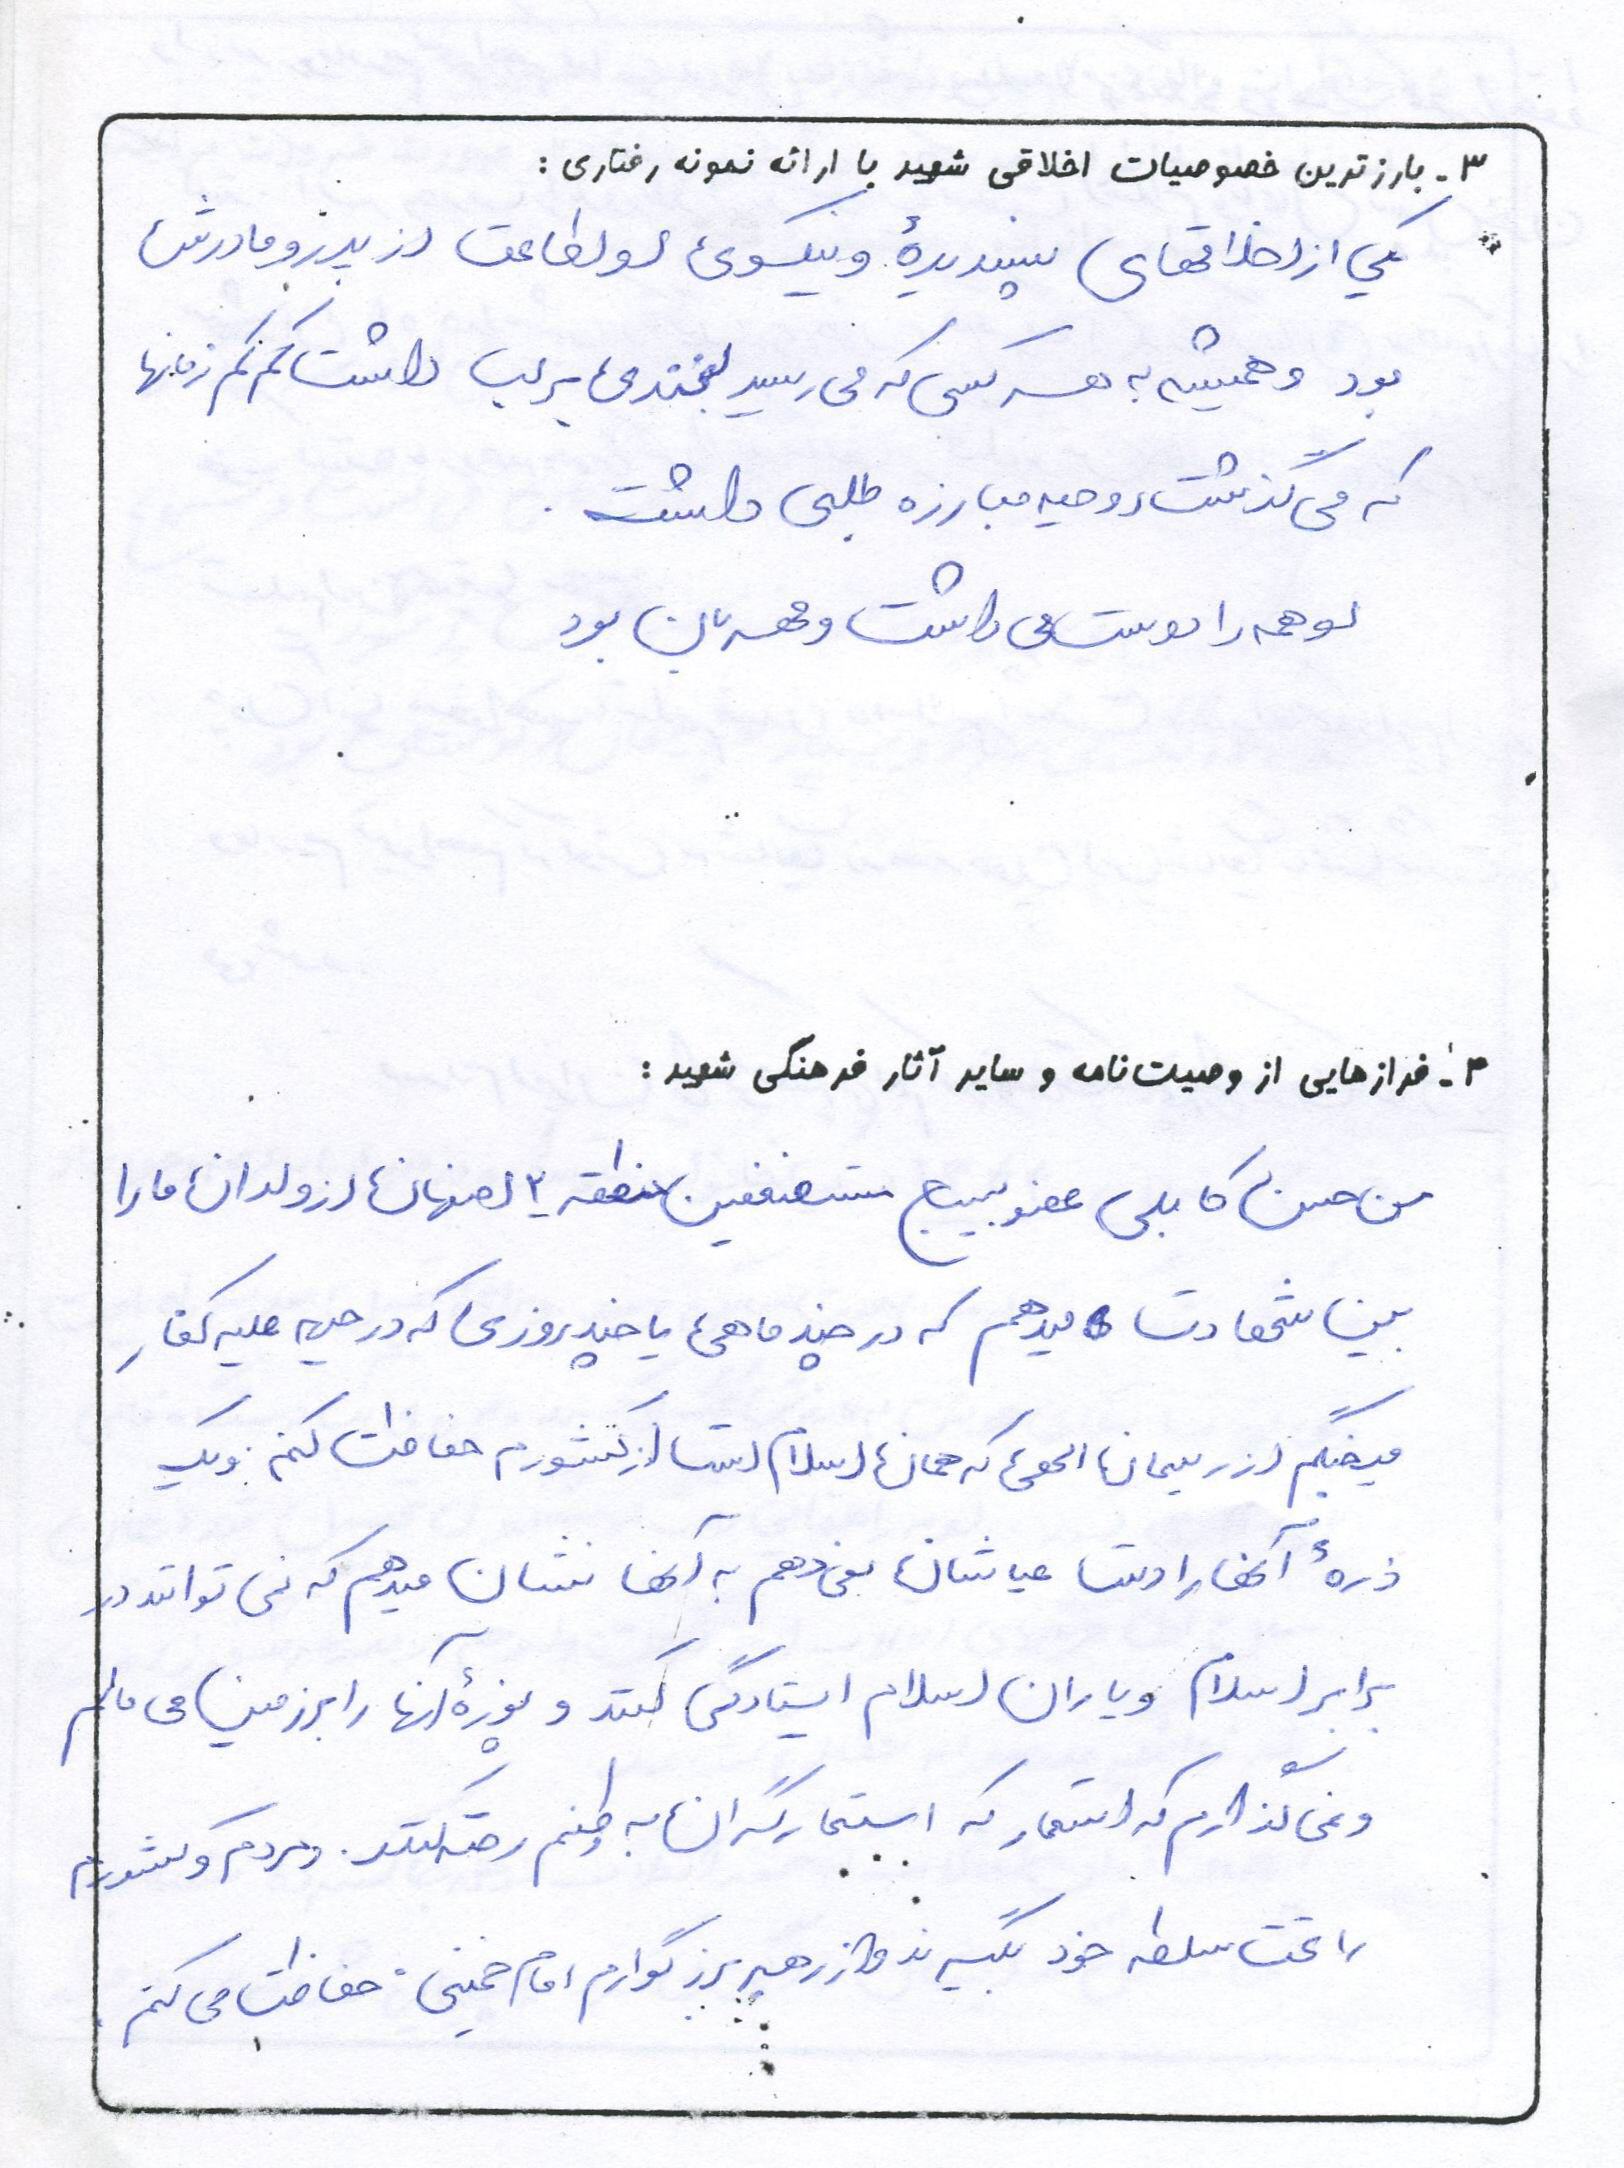 ۳- بارزترین خصوصیات اخلاقی شهید با ارائه نمونه رفتاری :
یکی از اخلاقهای پسندیدهٔ و نیکوی او اطاعت از پدر و مادرش
بود و همیشه به هر کسی که می رسید لبخندی بر لب داشت کم کم زمانها
که می گذشت روحیه مبارزه طلبی داشت .
او همه را دوست می داشت و مهربان بود
۴- فرازهایی از وصیت‌نامه و سایر آثار فرهنگی شهید :
من حسن کابلی عضو بسیج مستضعفین منطقه ۲ اصفهان از ولدان ما را
بین شهادت میدهم که در چند ماهی یا چند روزی که در جبهه علیه کفار
میجنگم از ریسمان الهی که همان اسلام است از کشورم حفاظت کنم . و یک
ذرهٔ آنها را دست به آنها نشان میدهم که نمی توانند در
برابر اسلام و یاران اسلام ایستادگی کنند و پوزهٔ آنها را بر زمین می مالم
و نمی گذارم که استعمار که استثمارگران به وطنم رخنه کنند . و مردم و کشورم
را تحت سلطه خود بگیرند و از رهبر بزرگوارم امام خمینی حفاظت می کنم .